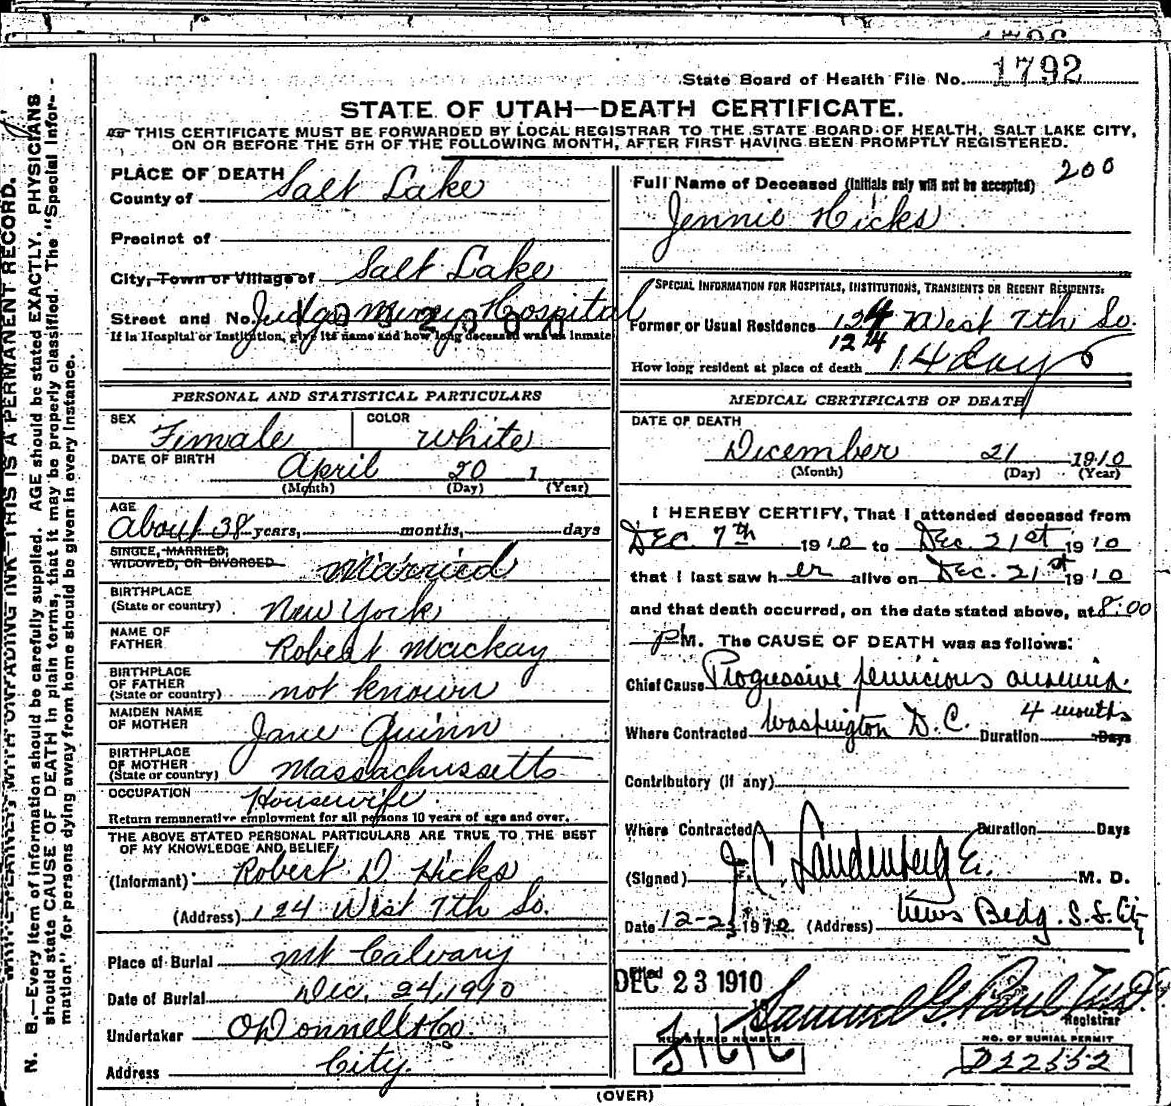 State Board of Health File No. 1792
STATE OF UTAH—DEATH CERTIFICATE.
THIS CERTIFICATE MUST BE FORWARDED BY LOCAL REGISTRAR TO THE STATE BOARD OF HEALTH, SALT LAKE CITY,
ON OR BEFORE THE 5TH OF THE FOLLOWING MONTH, AFTER FIRST HAVING BEEN PROMPTLY REGISTERED.
N. B.—Every item of information should be carefully supplied. AGE should be stated EXACTLY. PHYSICIANS
should state CAUSE OF DEATH in plain terms, that it may be properly classified. The "Special Infor-
mation" for persons dying away from home should be given in every instance.
WITH UNFADING INK—THIS IS A PERMANENT RECORD.
PLACE OF DEATH
County of Salt Lake
Precinct of
City, Town or Village of Salt Lake
Street and No. Judge Hospital
If in Hospital or Institution, give its name and how long deceased was an inmate
PERSONAL AND STATISTICAL PARTICULARS
SEX Female COLOR White
DATE OF BIRTH April 20 1
(Month) (Day) (Year)
AGE
About 38 years, months, days
SINGLE, MARRIED,
WIDOWED, OR DIVORCED Married
BIRTHPLACE
(State or country) New York
NAME OF
FATHER Robert Mackay
BIRTHPLACE
OF FATHER
(State or country) not known
MAIDEN NAME
OF MOTHER Jane Quinn
BIRTHPLACE
OF MOTHER
(State or country) Massachussetts
OCCUPATION Housewife
Return remunerative employment for all persons 10 years of age and over.
THE ABOVE STATED PERSONAL PARTICULARS ARE TRUE TO THE BEST
OF MY KNOWLEDGE AND BELIEF
(Informant) Robert D Hicks
(Address) 124 West 7th So.
Place of Burial Mt Calvary
Date of Burial Dec. 24, 1910
Undertaker O'Donnell & Co.
Address City.
200
Full Name of Deceased (Initials only will not be accepted)
Jennie Hicks
SPECIAL INFORMATION FOR HOSPITALS, INSTITUTIONS, TRANSIENTS OR RECENT RESIDENTS:
Former or Usual Residence 124 West 7th So.
124
How long resident at place of death 14 days
MEDICAL CERTIFICATE OF DEATH
DATE OF DEATH
December 21 1910
(Month) (Day) (Year)
I HEREBY CERTIFY, That I attended deceased from
Dec. 7th 1910 to Dec. 21st 1910
that I last saw her alive on Dec. 21st 1910
and that death occurred, on the date stated above, at 8:00
P M. The CAUSE OF DEATH was as follows:
Chief Cause Progressive pernicious anaemia.
4 months
Where Contracted Washington D.C. Duration Days
Contributory (if any)
Where Contracted Duration Days
(Signed) J. C. Landenberger M. D.
Date 12-23 1910 (Address) News Bedg. S.L. City
Filed
DEC 23 1910
Samuel G. Paul
Registrar
REGISTERED NUMBER
NO. OF BURIAL PERMIT
D22552
(OVER)